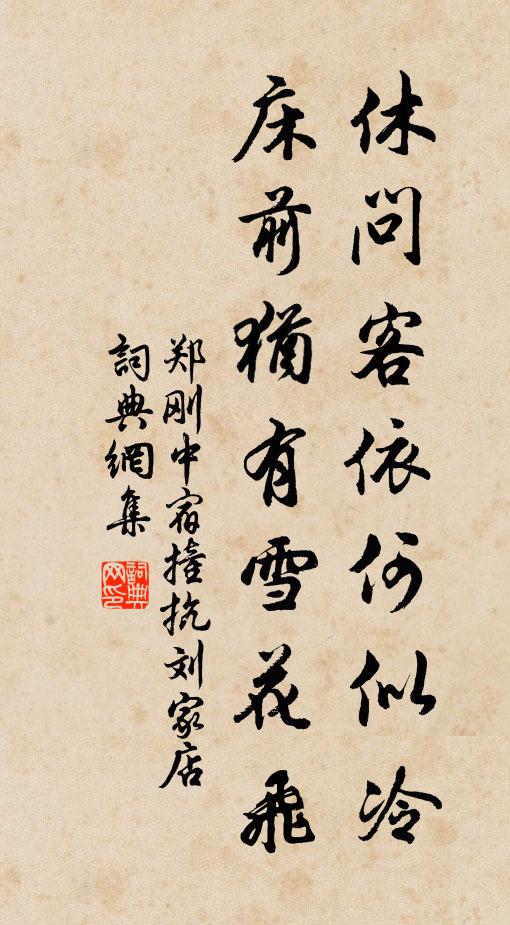 休問客依何似冷
床前猶有雪花飛
郑刚中宿撞抗刘家店
詞典網集
詞典网印